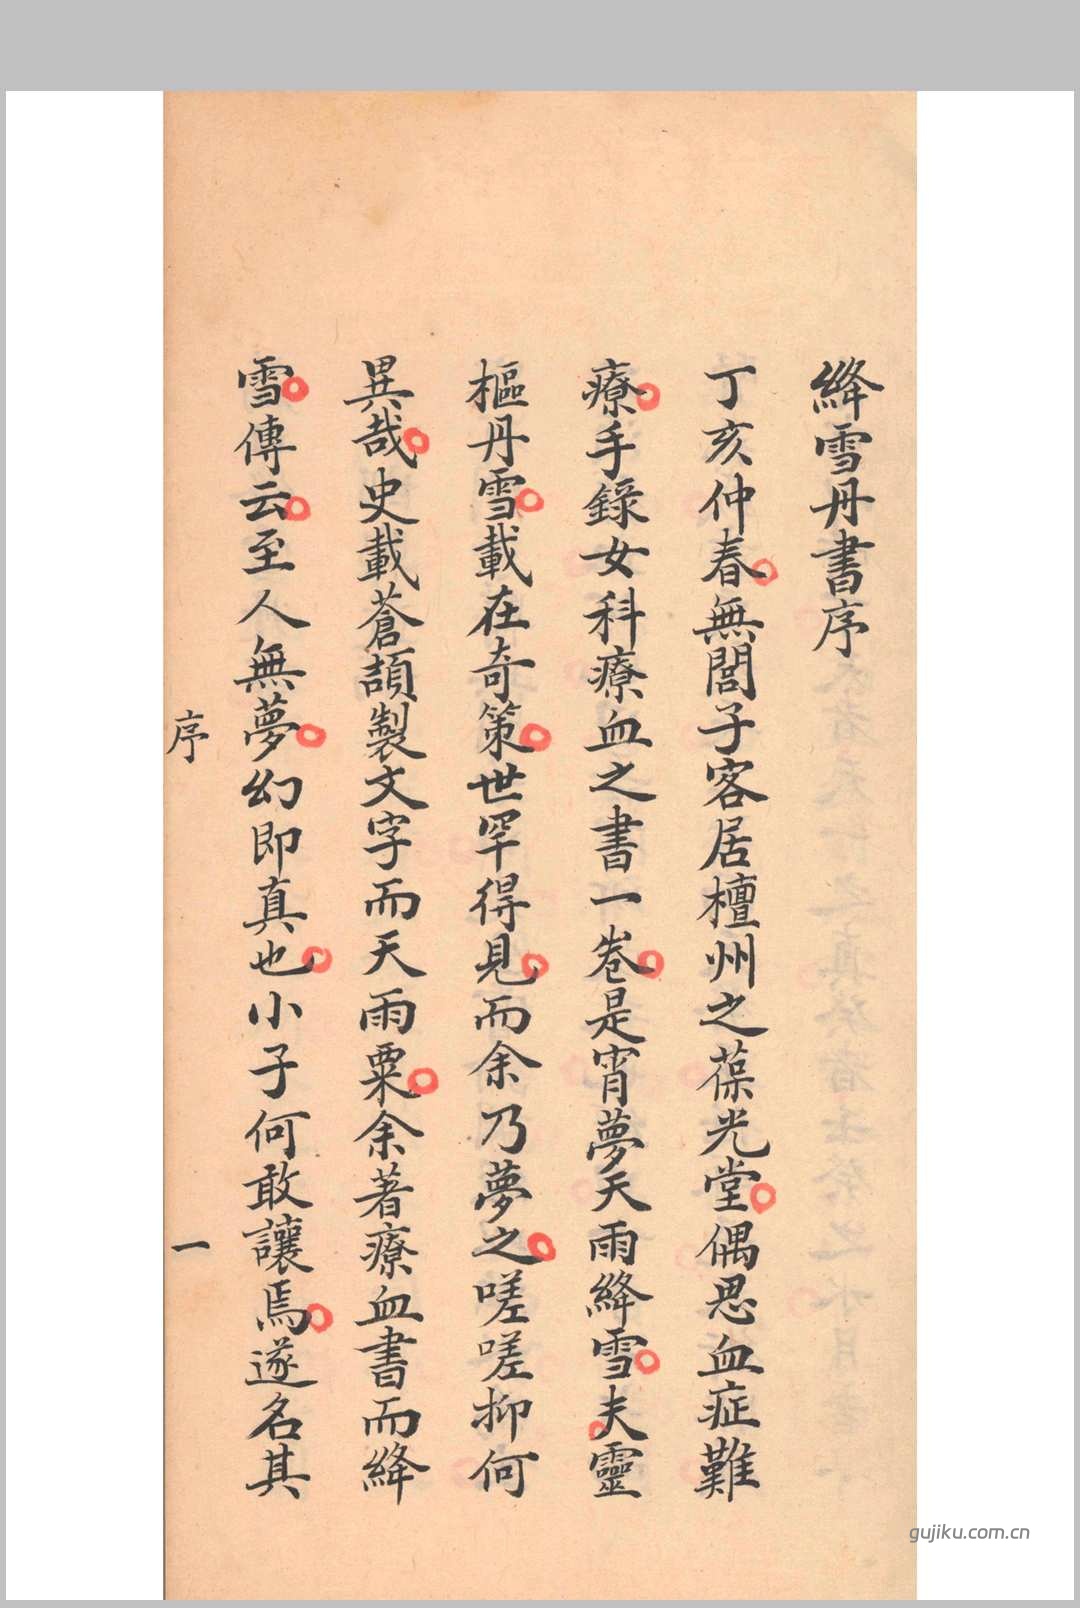 絳雪丹書序
丁亥仲春無閭子客居檀州之葆光堂偶思血症難
療手錄女科療血之書一卷是宵夢天雨絳雪夫靈
樞丹雪載在奇策世罕得見而余乃夢之嗟嗟抑何
異哉史載蒼頡製文字而天雨粟余著療血書而絳
雪傳云至人無夢幻即真也小子何敢讓焉遂名其
序
一
gujiku.com.cn